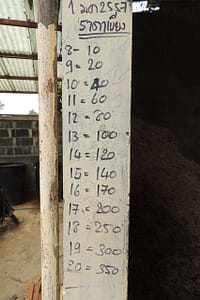 1 มกา 2557
ราคาเขียง
8- 10
9 = 20
10 = 40
11 = 60
12 = 80
13 = 100
14 = 120
15 = 140
16 = 170
17 = 200
18 = 250
19 = 300
20 = 350